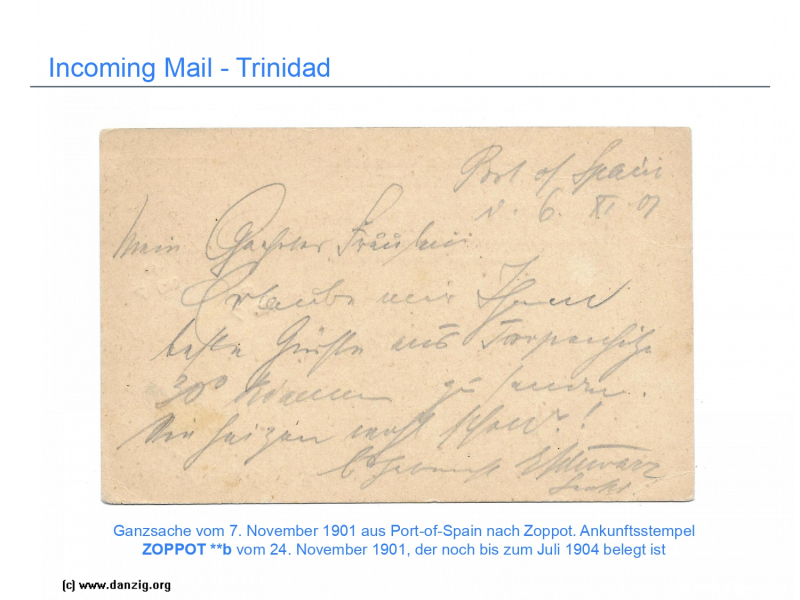 Incoming Mail - Trinidad
Port of Spain
d. 6. XI. 01
Mein Geehrtes Fräulein
Erlaube mir Ihnen
beste Grüße aus Tropenhitze
30° zu senden.
Sie heizen wohl schon?!
Schwarz
Ganzsache vom 7. November 1901 aus Port-of-Spain nach Zoppot. Ankunftsstempel
ZOPPOT **b vom 24. November 1901, der noch bis zum Juli 1904 belegt ist
(c) www.danzig.org